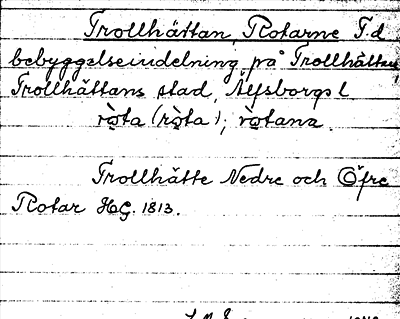 Trollhättan, Rotarne F.d
bebyggelseindelning på Trollhättan,
Trollhättans stad, Älfsborgs l
ròta (ròta); ròtana.
Trollhätte Nedre och Öfre
Rotar HG. 1813.